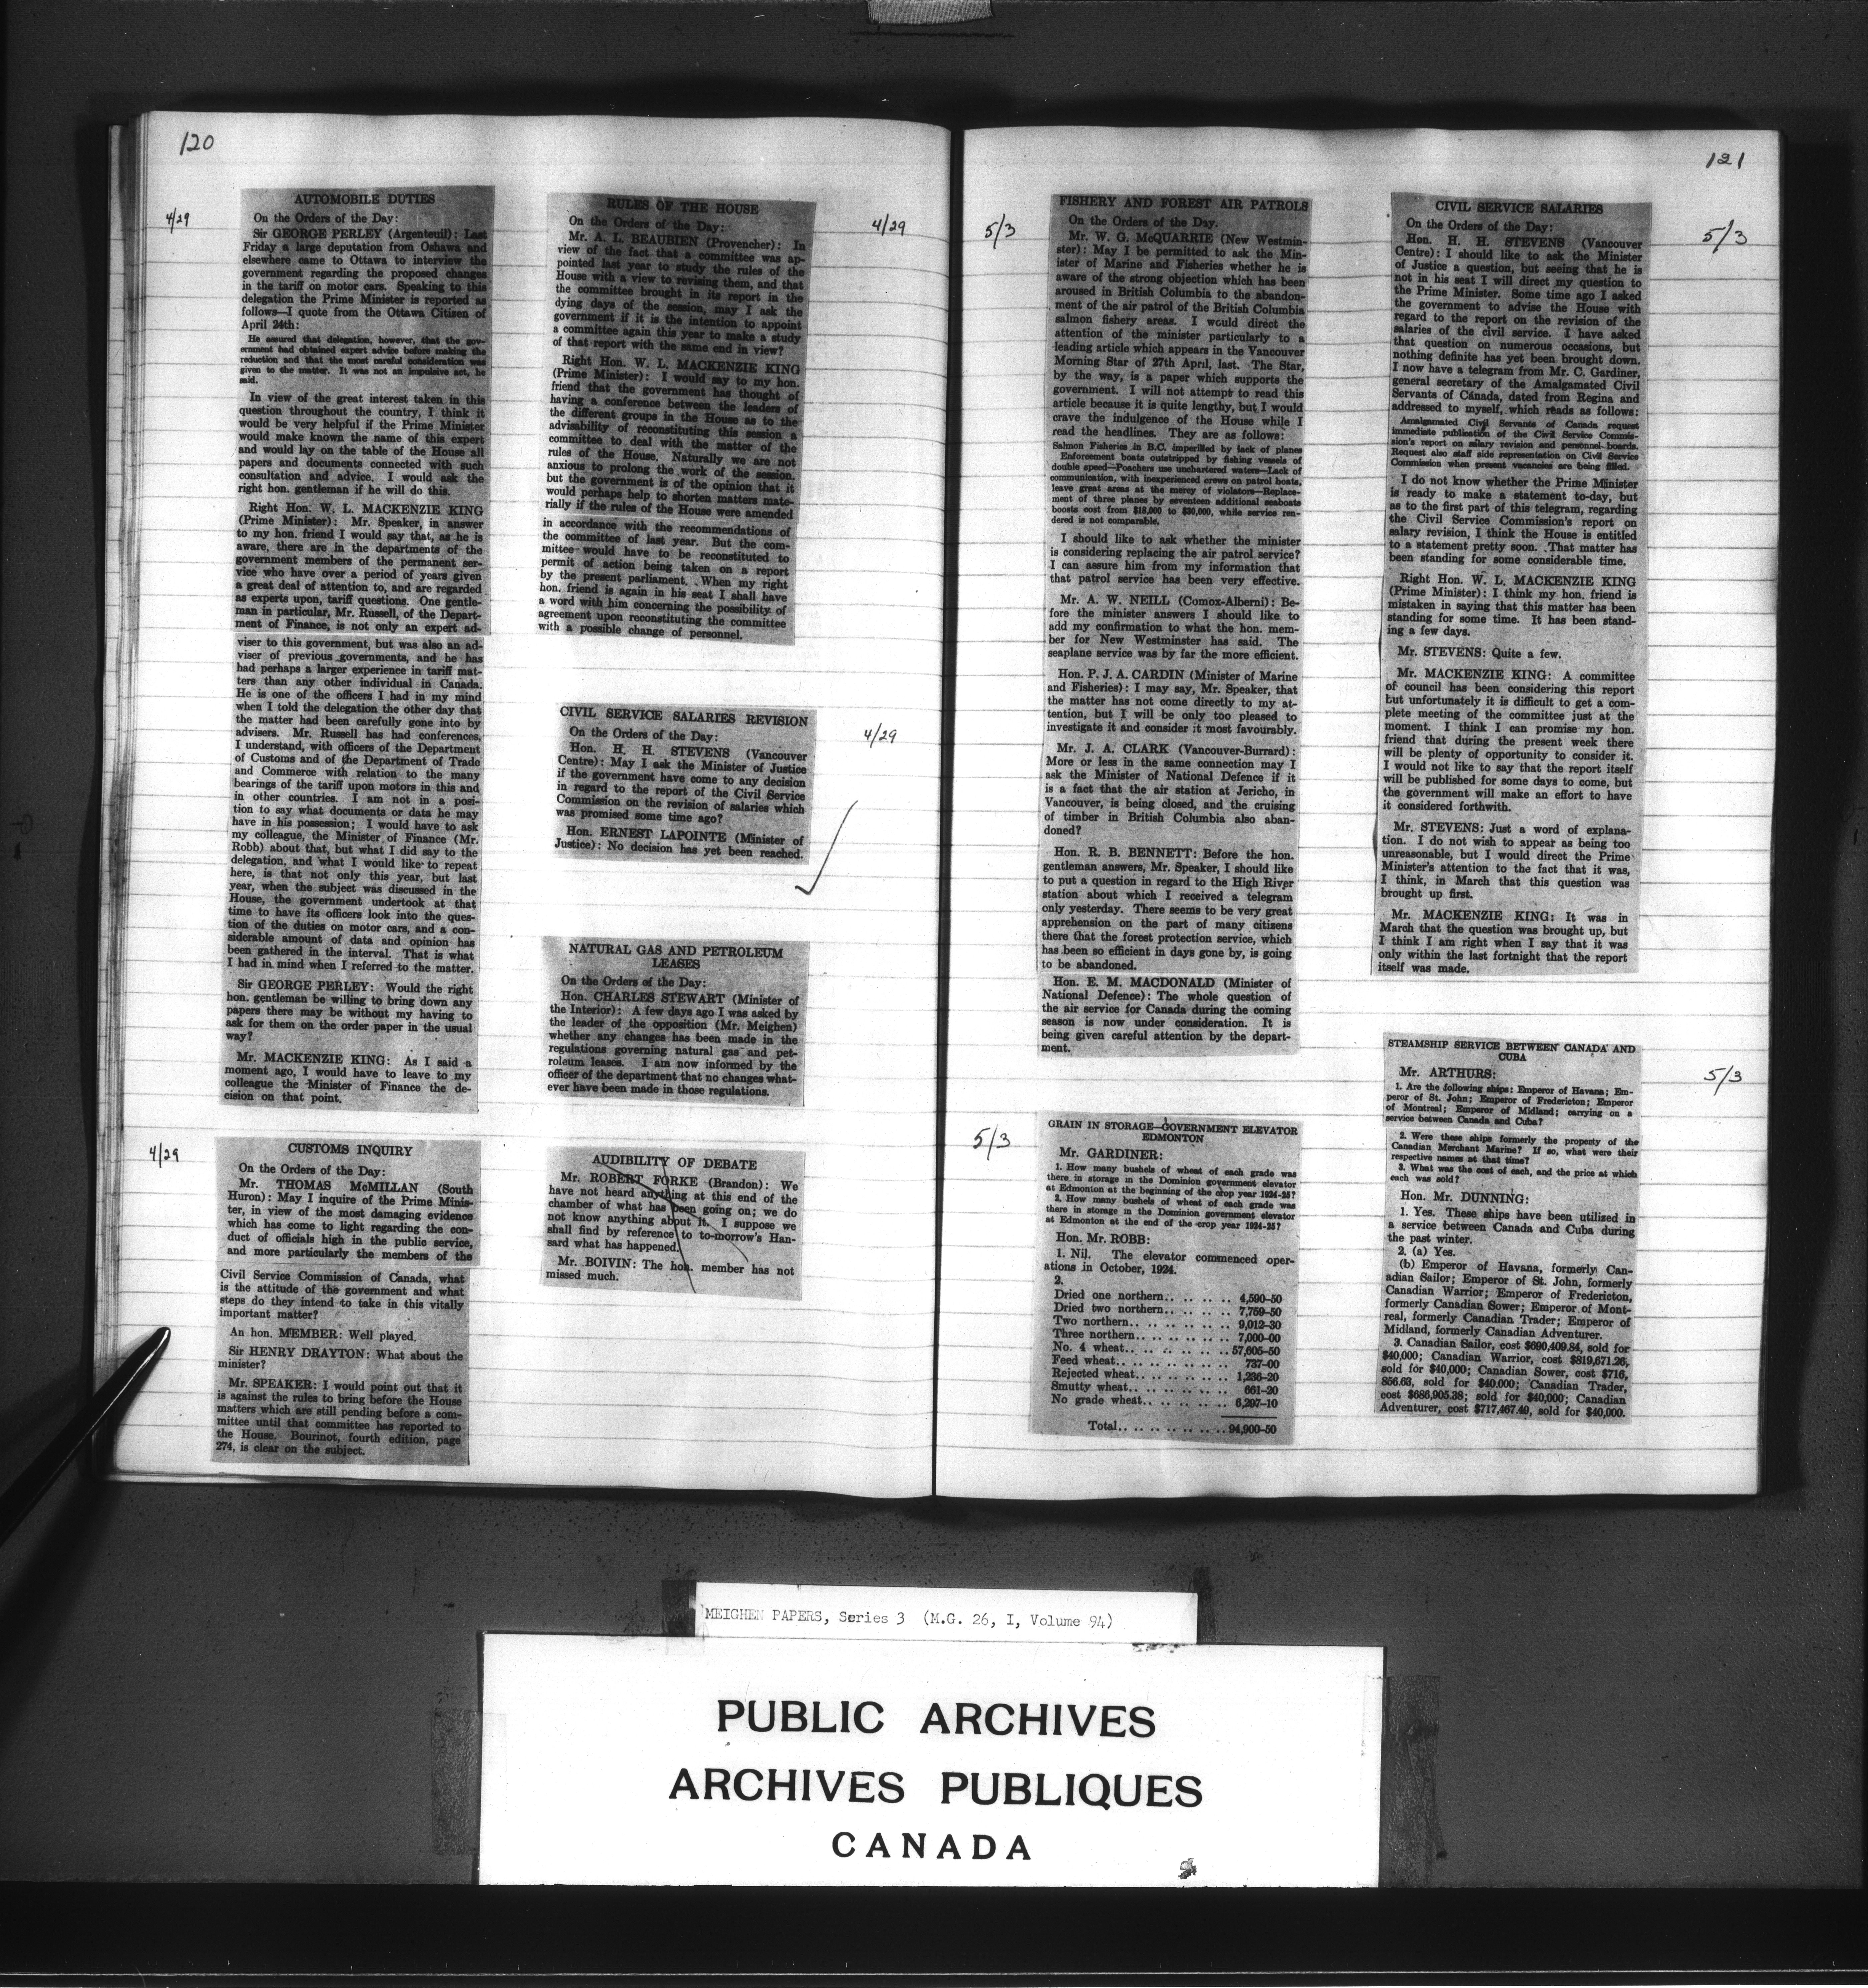 120
4/29
AUTOMOBILE DUTIES
On the Orders of the Day:
Sir GEORGE PERLEY (Argenteuil): Last
Friday a large deputation from Oshawa and
elsewhere came to Ottawa to interview the
government regarding the proposed changes
in the tariff on motor cars. Speaking to this
delegation the Prime Minister is reported as
follows—I quote from the Ottawa Citizen of
April 24th:
He assured that delegation, however, that the gov-
ernment had obtained expert advice before making the
reduction and that the most careful consideration was
given to the matter. It was not an impulsive act, he
said.
In view of the great interest taken in this
question throughout the country, I think it
would be very helpful if the Prime Minister
would make known the name of this expert
and would lay on the table of the House all
papers and documents connected with such
consultation and advice. I would ask the
right hon. gentleman if he will do this.
Right Hon. W. L. MACKENZIE KING
(Prime Minister): Mr. Speaker, in answer
to my hon. friend I would say that, as he is
aware, there are in the departments of the
government members of the permanent ser-
vice who have over a period of years given
a great deal of attention to, and are regarded
as experts upon, tariff questions. One gentle-
man in particular, Mr. Russell, of the Depart-
ment of Finance, is not only an expert ad-
viser to this government, but was also an ad-
viser of previous governments, and he has
had perhaps a larger experience in tariff mat-
ters than any other individual in Canada.
He is one of the officers I had in my mind
when I told the delegation the other day that
the matter had been carefully gone into by
advisers. Mr. Russell has had conferences,
I understand, with officers of the Department
of Customs and of the Department of Trade
and Commerce with relation to the many
bearings of the tariff upon motors in this and
in other countries. I am not in a posi-
tion to say what documents or data he may
have in his possession; I would have to ask
my colleague, the Minister of Finance (Mr.
Robb) about that, but what I did say to the
delegation, and what I would like to repeat
here, is that not only this year, but last
year, when the subject was discussed in the
House, the government undertook at that
time to have its officers look into the ques-
tion of the duties on motor cars, and a con-
siderable amount of data and opinion has
been gathered in the interval. That is what
I had in mind when I referred to the matter.
Sir GEORGE PERLEY: Would the right
hon. gentleman be willing to bring down any
papers there may be without my having to
ask for them on the order paper in the usual
way?
Mr. MACKENZIE KING: As I said a
moment ago, I would have to leave to my
colleague the Minister of Finance the de-
cision on that point.
4/29
CUSTOMS INQUIRY
On the Orders of the Day:
Mr. THOMAS McMILLAN (South
Huron): May I inquire of the Prime Minis-
ter, in view of the most damaging evidence
which has come to light regarding the con-
duct of officials high in the public service,
and more particularly the members of the
Civil Service Commission of Canada, what
is the attitude of the government and what
steps do they intend to take in this vitally
important matter?
An hon. MEMBER: Well played.
Sir HENRY DRAYTON: What about the
minister?
Mr. SPEAKER: I would point out that it
is against the rules to bring before the House
matters which are still pending before a com-
mittee until that committee has reported to
the House. Bourinot, fourth edition, page
274, is clear on the subject.
4/29
RULES OF THE HOUSE
On the Orders of the Day:
Mr. A. L. BEAUBIEN (Provencher): In
view of the fact that a committee was ap-
pointed last year to study the rules of the
House with a view to revising them, and that
the committee brought in its report in the
dying days of the session, may I ask the
government if it is the intention to appoint
a committee again this year to make a study
of that report with the same end in view?
Right Hon. W. L. MACKENZIE KING
(Prime Minister): I would say to my hon.
friend that the government has thought of
having a conference between the leaders of
the different groups in the House as to the
advisability of reconstituting this session a
committee to deal with the matter of the
rules of the House. Naturally we are not
anxious to prolong the work of the session,
but the government is of the opinion that it
would perhaps help to shorten matters mate-
rially if the rules of the House were amended
in accordance with the recommendations of
the committee of last year. But the com-
mittee would have to be reconstituted to
permit of action being taken on a report
by the present parliament. When my right
hon. friend is again in his seat I shall have
a word with him concerning the possibility of
agreement upon reconstituting the committee
with a possible change of personnel.
4/29
CIVIL SERVICE SALARIES REVISION
On the Orders of the Day:
Hon. H. H. STEVENS (Vancouver
Centre): May I ask the Minister of Justice
if the government have come to any decision
in regard to the report of the Civil Service
Commission on the revision of salaries which
was promised some time ago?
Hon. ERNEST LAPOINTE (Minister of
Justice): No decision has yet been reached.
NATURAL GAS AND PETROLEUM
LEASES
On the Orders of the Day:
Hon. CHARLES STEWART (Minister of
the Interior): A few days ago I was asked by
the leader of the opposition (Mr. Meighen)
whether any changes has been made in the
regulations governing natural gas and pet-
roleum leases. I am now informed by the
officer of the department that no changes what-
ever have been made in those regulations.
AUDIBILITY OF DEBATE
Mr. ROBERT FORKE (Brandon): We
have not heard anything at this end of the
chamber of what has been going on; we do
not know anything about it. I suppose we
shall find by reference to to-morrow's Han-
sard what has happened.
Mr. BOIVIN: The hon. member has not
missed much.
121
5/3
FISHERY AND FOREST AIR PATROLS
On the Orders of the Day.
Mr. W. G. McQUARRIE (New Westmin-
ster): May I be permitted to ask the Min-
ister of Marine and Fisheries whether he is
aware of the strong objection which has been
aroused in British Columbia to the abandon-
ment of the air patrol of the British Columbia
salmon fishery areas. I would direct the
attention of the minister particularly to a
leading article which appears in the Vancouver
Morning Star of 27th April, last. The Star,
by the way, is a paper which supports the
government. I will not attempt to read this
article because it is quite lengthy, but I would
crave the indulgence of the House while I
read the headlines. They are as follows:
Salmon Fisheries in B.C. imperilled by lack of planes
Enforcement boats outstripped by fishing vessels of
double speed—Poachers use unchartered waters—Lack of
communication, with inexperienced crews on patrol boats,
leave great areas at the mercy of violators—Replace-
ment of three planes by seventeen additional seaboats
boosts cost from $18,000 to $30,000, while service ren-
dered is not comparable.
I should like to ask whether the minister
is considering replacing the air patrol service?
I can assure him from my information that
that patrol service has been very effective.
Mr. A. W. NEILL (Comox-Alberni): Be-
fore the minister answers I should like to
add my confirmation to what the hon. mem-
ber for New Westminster has said. The
seaplane service was by far the more efficient.
Hon. P. J. A. CARDIN (Minister of Marine
and Fisheries): I may say, Mr. Speaker, that
the matter has not come directly to my at-
tention, but I will be only too pleased to
investigate it and consider it most favourably.
Mr. J. A. CLARK (Vancouver-Burrard):
More or less in the same connection may I
ask the Minister of National Defence if it
is a fact that the air station at Jericho, in
Vancouver, is being closed, and the cruising
of timber in British Columbia also aban-
doned?
Hon. R. B. BENNETT: Before the hon.
gentleman answers, Mr. Speaker, I should like
to put a question in regard to the High River
station about which I received a telegram
only yesterday. There seems to be very great
apprehension on the part of many citizens
there that the forest protection service, which
has been so efficient in days gone by, is going
to be abandoned.
Hon. E. M. MACDONALD (Minister of
National Defence): The whole question of
the air service for Canada during the coming
season is now under consideration. It is
being given careful attention by the depart-
ment.
5/3
GRAIN IN STORAGE—GOVERNMENT ELEVATOR
EDMONTON
Mr. GARDINER:
1. How many bushels of wheat of each grade was
there in storage in the Dominion government elevator
at Edmonton at the beginning of the crop year 1924-25?
2. How many bushels of wheat of each grade was
there in storage in the Dominion government elevator
at Edmonton at the end of the crop year 1924-25?
Hon. Mr. ROBB:
1. Nil. The elevator commenced oper-
ations in October, 1924.
2.
Dried one northern.. .. .. .. .. 4,590-50
Dried two northern.. .. .. .. .. 7,759-50
Two northern.. .. .. .. .. .. .. 9,012-30
Three northern.. .. .. .. .. .. 7,000-00
No. 4 wheat.. .. .. .. .. .. .. 57,605-50
Feed wheat.. .. .. .. .. .. .. 737-00
Rejected wheat.. .. .. .. .. .. 1,236-20
Smutty wheat.. .. .. .. .. .. 661-20
No grade wheat.. .. .. .. .. .. 6,297-10
Total.. .. .. .. .. .. .. 94,900-50
5/3
CIVIL SERVICE SALARIES
On the Orders of the Day:
Hon. H. H. STEVENS (Vancouver
Centre): I should like to ask the Minister
of Justice a question, but seeing that he is
not in his seat I will direct my question to
the Prime Minister. Some time ago I asked
the government to advise the House with
regard to the report on the revision of the
salaries of the civil service. I have asked
that question on numerous occasions, but
nothing definite has yet been brought down.
I now have a telegram from Mr. C. Gardiner,
general secretary of the Amalgamated Civil
Servants of Canada, dated from Regina and
addressed to myself, which reads as follows:
Amalgamated Civil Servants of Canada request
immediate publication of the Civil Service Commis-
sion's report on salary revision and personnel boards.
Request also staff side representation on Civil Service
Commission when present vacancies are being filled.
I do not know whether the Prime Minister
is ready to make a statement to-day, but
as to the first part of this telegram, regarding
the Civil Service Commission's report on
salary revision, I think the House is entitled
to a statement pretty soon. That matter has
been standing for some considerable time.
Right Hon. W. L. MACKENZIE KING
(Prime Minister): I think my hon. friend is
mistaken in saying that this matter has been
standing for some time. It has been stand-
ing a few days.
Mr. STEVENS: Quite a few.
Mr. MACKENZIE KING: A committee
of council has been considering this report
but unfortunately it is difficult to get a com-
plete meeting of the committee just at the
moment. I think I can promise my hon.
friend that during the present week there
will be plenty of opportunity to consider it.
I would not like to say that the report itself
will be published for some days to come, but
the government will make an effort to have
it considered forthwith.
Mr. STEVENS: Just a word of explana-
tion. I do not wish to appear as being too
unreasonable, but I would direct the Prime
Minister's attention to the fact that it was,
I think, in March that this question was
brought up first.
Mr. MACKENZIE KING: It was in
March that the question was brought up, but
I think I am right when I say that it was
only within the last fortnight that the report
itself was made.
5/3
STEAMSHIP SERVICE BETWEEN CANADA AND
CUBA
Mr. ARTHURS:
1. Are the following ships: Emperor of Havana; Em-
peror of St. John; Emperor of Fredericton; Emperor
of Montreal; Emperor of Midland; carrying on a
service between Canada and Cuba?
2. Were these ships formerly the property of the
Canadian Merchant Marine? If so, what were their
respective names at that time?
3. What was the cost of each, and the price at which
each was sold?
Hon. Mr. DUNNING:
1. Yes. These ships have been utilized in
a service between Canada and Cuba during
the past winter.
2. (a) Yes.
(b) Emperor of Havana, formerly Can-
adian Sailor; Emperor of St. John, formerly
Canadian Warrior; Emperor of Fredericton,
formerly Canadian Sower; Emperor of Mont-
real, formerly Canadian Trader; Emperor of
Midland, formerly Canadian Adventurer.
3. Canadian Sailor, cost $690,409.84, sold for
$40,000; Canadian Warrior, cost $819,671.26,
sold for $40,000; Canadian Sower, cost $716,
856.63, sold for $40,000; Canadian Trader,
cost $686,905.38; sold for $40,000; Canadian
Adventurer, cost $717,467.49, sold for $40,000.
MEIGHEN PAPERS, Series 3 (M.G. 26, I, Volume 94)
PUBLIC ARCHIVES
ARCHIVES PUBLIQUES
CANADA